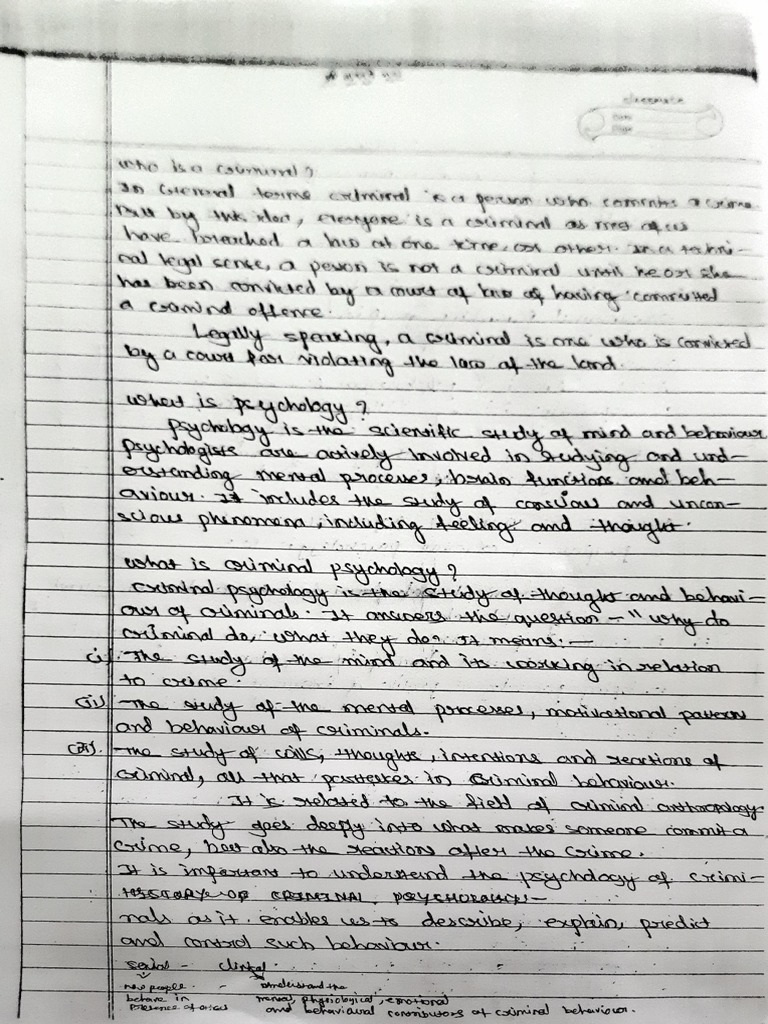 classmate
Date
Page
Who is a criminal?
In General terms criminal is a person who commits a crime.
But by this idea, everyone is a criminal as most of us
have breached a law at one time or other. In a techni-
cal legal sense, a person is not a criminal until he or she
has been convicted by a court of law of having committed
a criminal offence.
Legally speaking, a criminal is one who is convicted
by a court for violating the law of the land.
what is psychology?
psychology is the scientific study of mind and behaviour
psychologists are actively involved in studying and und-
erstanding mental processes, brain functions and beh-
aviour. It includes the study of conscious and uncon-
scious phenomena, including feeling and thought.
what is criminal psychology?
criminal psychology is the study of thought and behavi-
our of criminals. It answers the question - "why do
criminal do, what they do? It means:-
(i). The study of the mind and its working in relation
to crime.
(ii) The study of the mental processes, motivational pattern
and behaviour of criminals.
(iii). The study of wills, thoughts, intentions and reactions of
criminal, all that partakes in Criminal behaviour.
It is related to the field of criminal anthropology.
The study goes deeply into what makes someone commit a
crime, but also the reactions after the crime.
It is important to understand the psychology of crimi-
HISTORY OF CRIMINAL PSYCHOLOGY:-
nals as it enables us to describe, explain, predict
and control such behaviour.
Social - clinical
how people - understand the
behave in mental, physiological, emotional
presence of others and behavioural contributors of criminal behaviour.